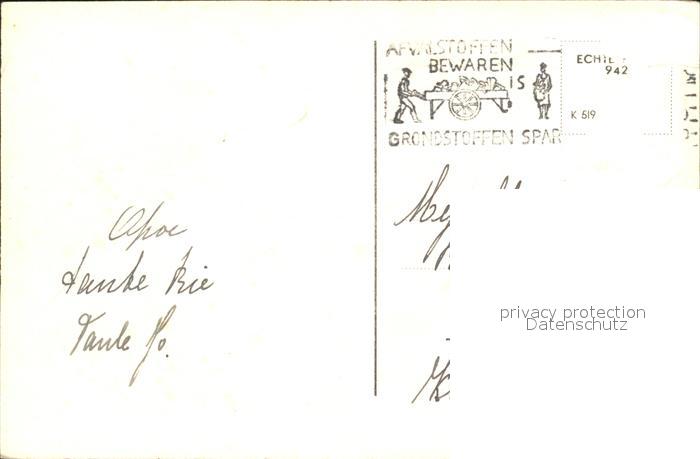 AFVALSTOFFEN
BEWAREN
IS
GRONDSTOFFEN SPAR
ECHTE
942
K 519
Opoe
Tante Rie
Tante Jo.
privacy protection
Datenschutz